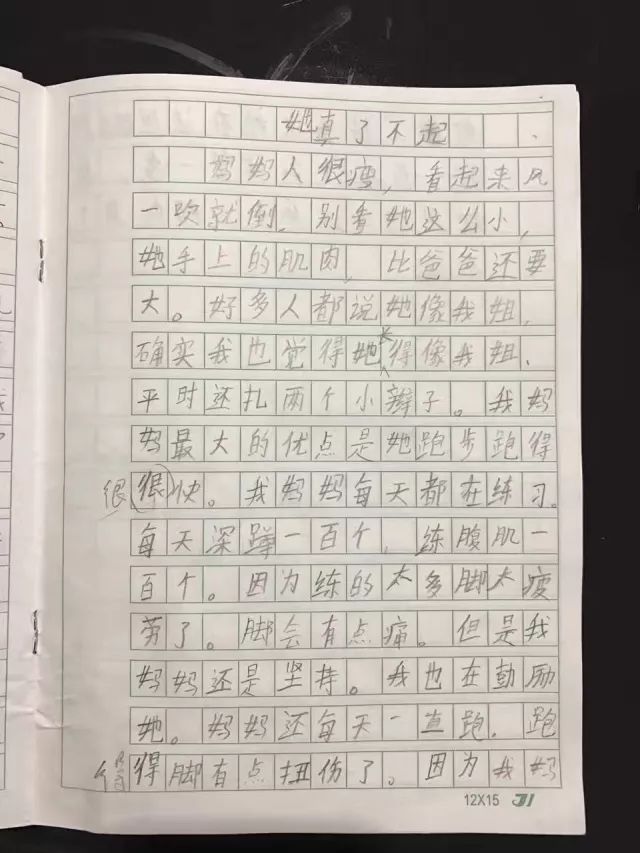 她真了不起
妈妈人很瘦，看起来风
一吹就倒，别看她这么小，
她手上的肌肉，比爸爸还要
大。好多人都说她像我姐，
确实我也觉得她长得像我姐，
平时还扎两个小辫子。我妈
妈最大的优点是她跑步跑得
很快。我妈妈每天都在练习。
每天深蹲一百个，练腹肌一
百个。因为练的太多脚太疲
劳了。脚会有点痛。但是我
妈妈还是坚持。我也在鼓励
她。妈妈还每天一直跑，跑
得脚有点扭伤了。因为我妈
12X15